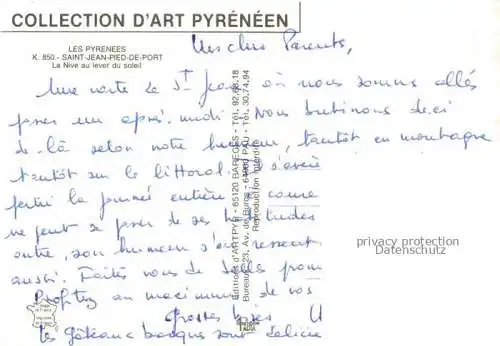 COLLECTION D'ART PYRÉNÉEN
LES PYRENEES
K. 850.- SAINT-JEAN-PIED-DE-PORT
La Nive au lever du soleil
Mes chers Parents,
Une carte de St Jean où nous sommes allés
passer un après-midi. Nous butinons deci
de-là selon notre humeur, tantôt en montagne
tantôt sur le littoral.
partir la journée entière, comme
ne peut se passer de ses habitudes
entre, son humeur s'en ressent
aussi. Faites vous de belles
Profitez au maximum de vos
Grosses bises
Les gâteaux basques sont délicieux
Editions d'ART PYR - 65120 BAREGES - Tél. 92.68.18
Bureau : 23, Av. de Buros - 64000 PAU - Tél. 30.74.94
Reproduction interdite
privacy protection
Datenschutz